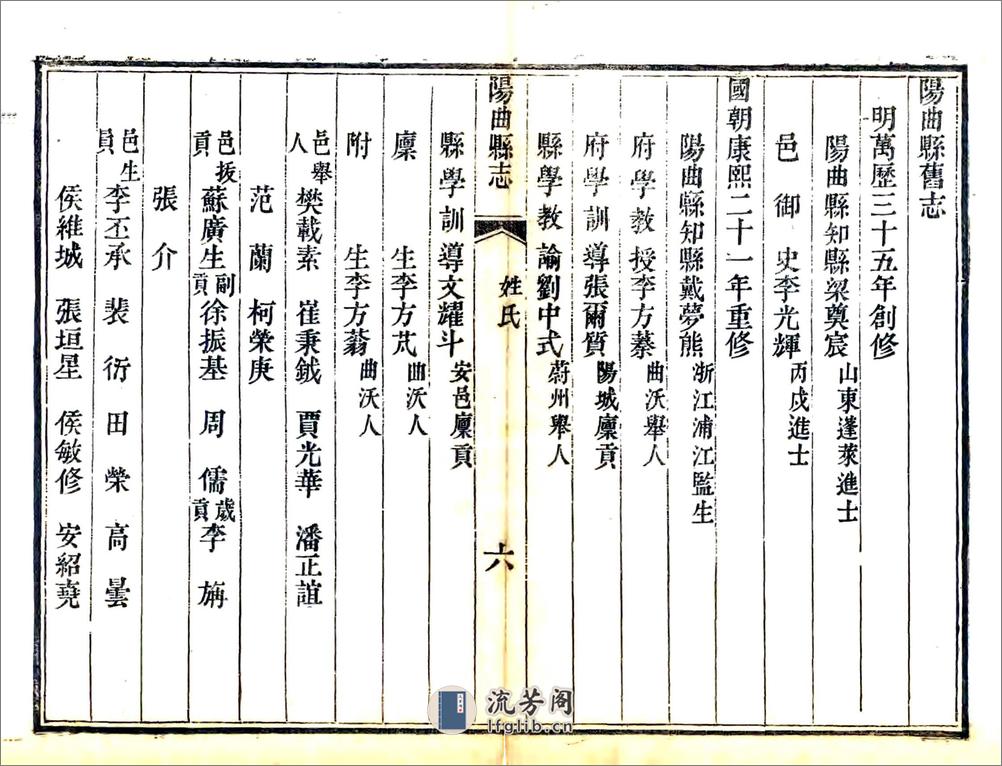 陽曲縣舊志
明萬歷三十五年創修
陽曲縣知縣梁奠宸山東蓬萊進士
邑御史李光輝丙戌進士
國朝康熙二十一年重修
陽曲縣知縣戴夢熊浙江浦江監生
府學教授李方蓁曲沃舉人
府學訓導張爾質陽城廩貢
縣學教諭劉中式蔚州舉人
陽曲縣志 姓氏 六
縣學訓導文耀斗安邑廩貢
廩生李方芃曲沃人
附生李方蓊曲沃人
邑舉人樊載素 崔秉鉞 賈光華 潘正誼
范蘭 柯榮庚
邑拔貢蘇廣生副貢徐振基 周儒歲貢李旃
張介
邑生員李丕承 裴衍 田榮 高曇
侯維城 張垣星 侯敏修 安紹堯
流芳阁
lfglib.cn